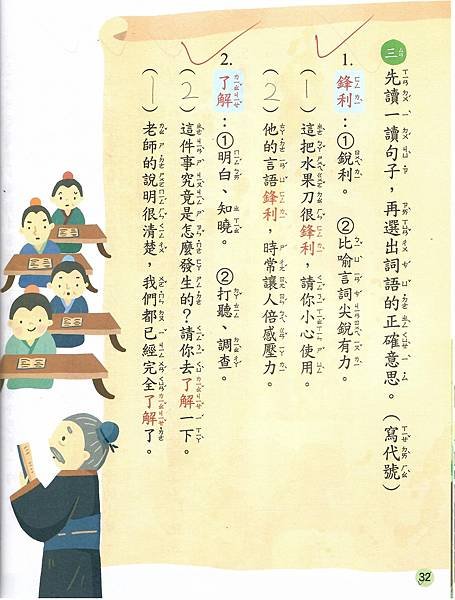 三 先讀一讀句子，再選出詞語的正確意思。（寫代號）
1. 鋒利：①銳利。 ②比喻言詞尖銳有力。
（1）這把水果刀很鋒利，請你小心使用。
（2）他的言語鋒利，時常讓人倍感壓力。
2. 了解：①明白、知曉。 ②打聽、調查。
（2）這件事究竟是怎麼發生的？請你去了解一下。
（1）老師的說明很清楚，我們都已經完全了解了。
32